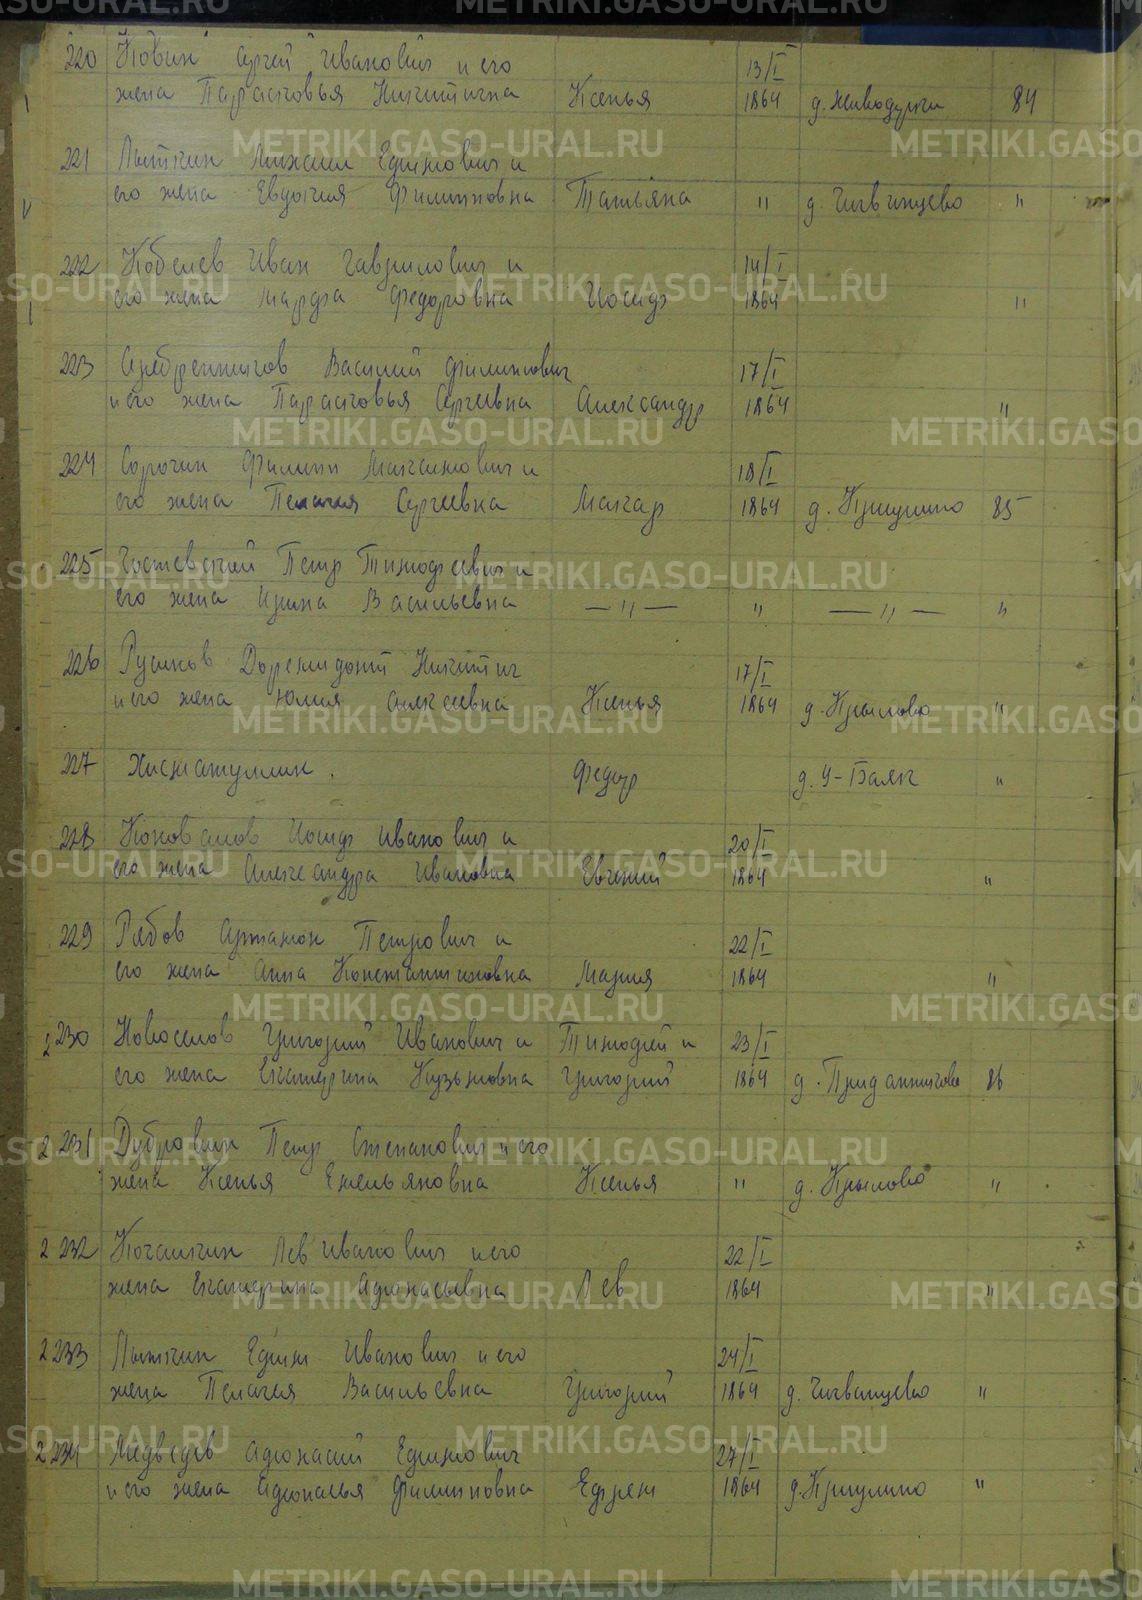 220 Новик Сергей Иванович и его 13/I
жена Парасковья Никитична Ксенья 1864 д. Живодерки 84
221 Лыткин Михаил Ефимович и
его жена Евдокия Филипповна Татьяна " "
222 Кобелев Иван Гаврилович и 14/I
его жена Марфа Федоровна Иосиф 1864 "
223 Серебренников Василий Филиппович 17/I
и его жена Парасковья Сергеевна Александр 1864 "
224 Сорокин Филипп Максимович и 18/I
его жена Пелагея Сергеевна Макар 1864 85
225 Петр Тимофеевич и
его жена Ирина Васильевна — " — " — " — "
226 Русинов Доремидонт Никитич 17/I
и его жена Юлия Алексеевна Ксенья 1864 д. Крылово "
227 Хисматуллин. Федор д. У-Баяк "
228 Коновалов Иосиф Иванович и 20/I
его жена Александра Ивановна Евгений 1864 "
229 Рябов Артамон Петрович и 22/I
его жена Анна Константиновна Мария 1864 "
2 230 Новоселов Григорий Иванович и Тимофей и 23/I
его жена Екатерина Кузьмовна Григорий 1864 д. Приданниково 86
2 231 Дубровин Петр Степанович и его
жена Ксенья Емельяновна Ксенья " д. Крылово "
2 232 Кочашкин Лев Иванович и его 22/I
жена Екатерина Афонасьевна Лев 1864 "
2 233 Лыткин Ефим Иванович и его 24/I
жена Пелагея Васильевна Григорий 1864 "
2 234 Медведев Афонасий Ефимович 27/I
и его жена Афонасья Филипповна Ефрем 1864 "
METRIKI.GASO-URAL.RU